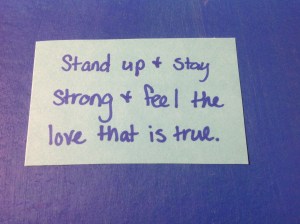 Stand up + stay
strong + feel the
love that is true.